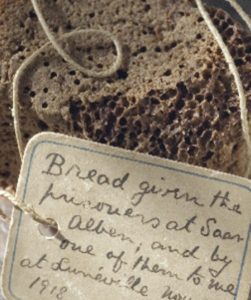 Bread given the
prisoners at Saar
Alben, and by
one of them to me
at Lunéville Nov
1918